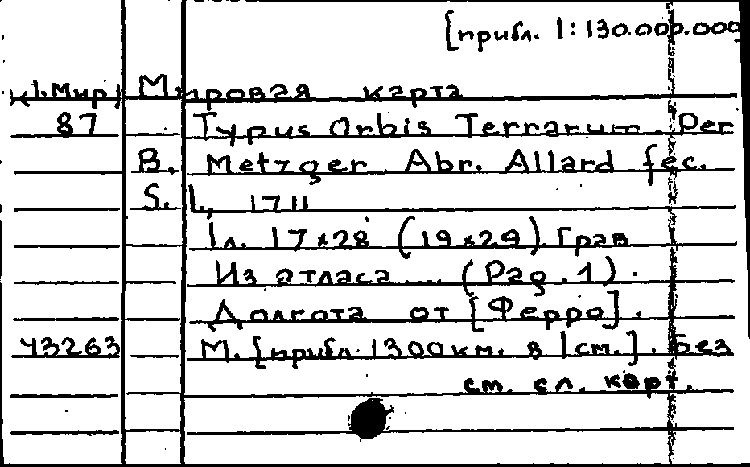 [прибл. 1:130.000.000
К1.Мир Мировая карта
87 Typus Orbis Terrarum. Per
B. Metzger Abr. Allard fec.
S. L, 1711
1л. 17x28 (19x29). Грав
Из атласа ... (Pag. 1).
Долгота от [Ферро].
43263 М. [прибл. 1300км. в 1см.]. Без
ст. сл. карт.